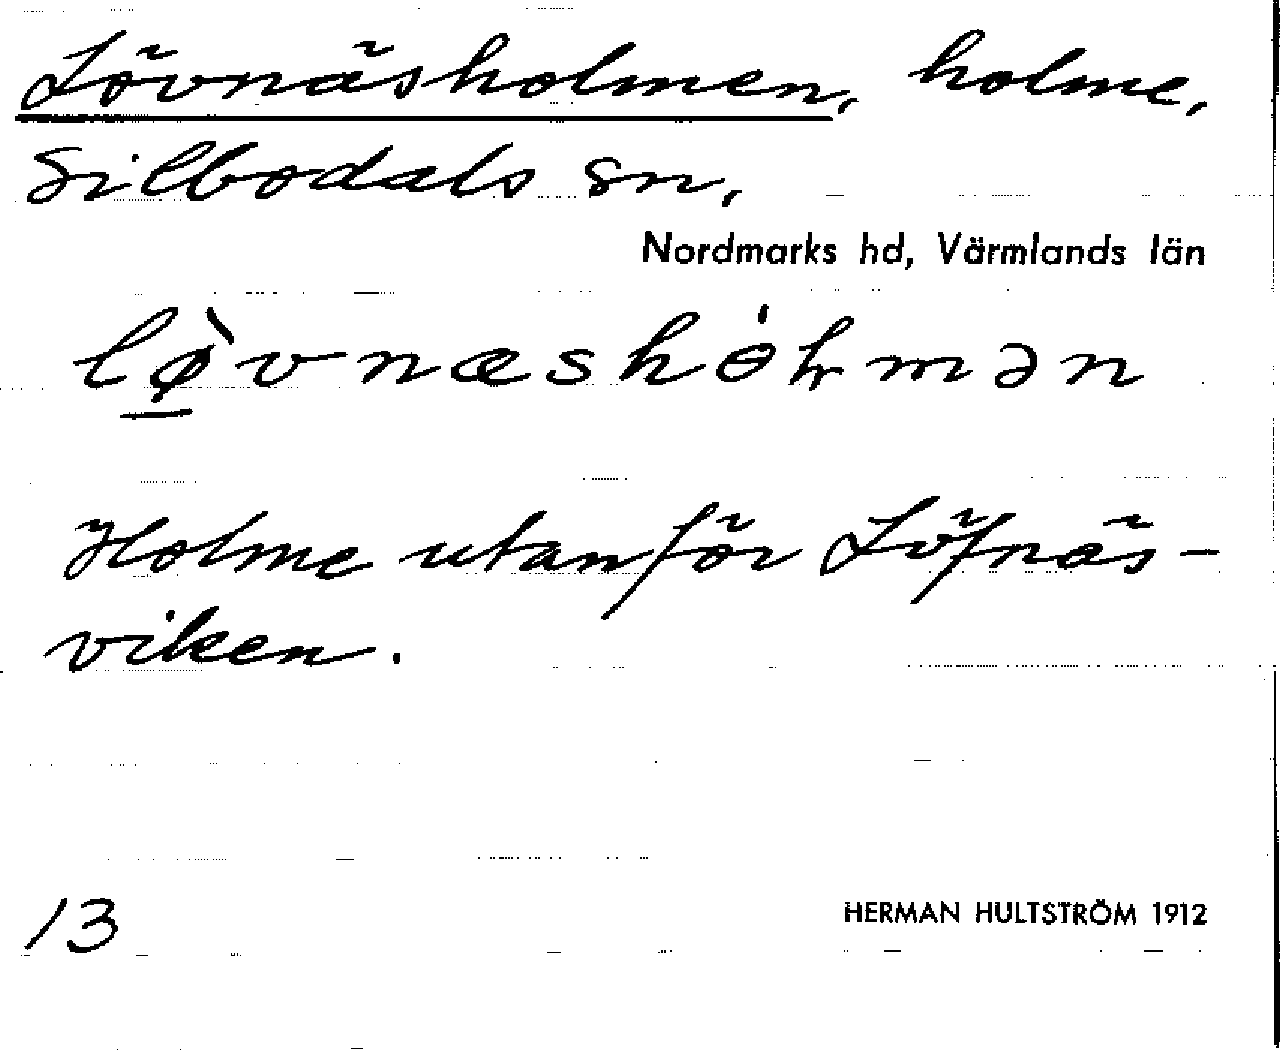 Lövnäsholmen, holme,
Silbodals sn,
Nordmarks hd, Värmlands län
lø̲̀vnæshɵ́ɫmən
Holme utanför Löfnäs-
viken.
13
HERMAN HULTSTRÖM 1912